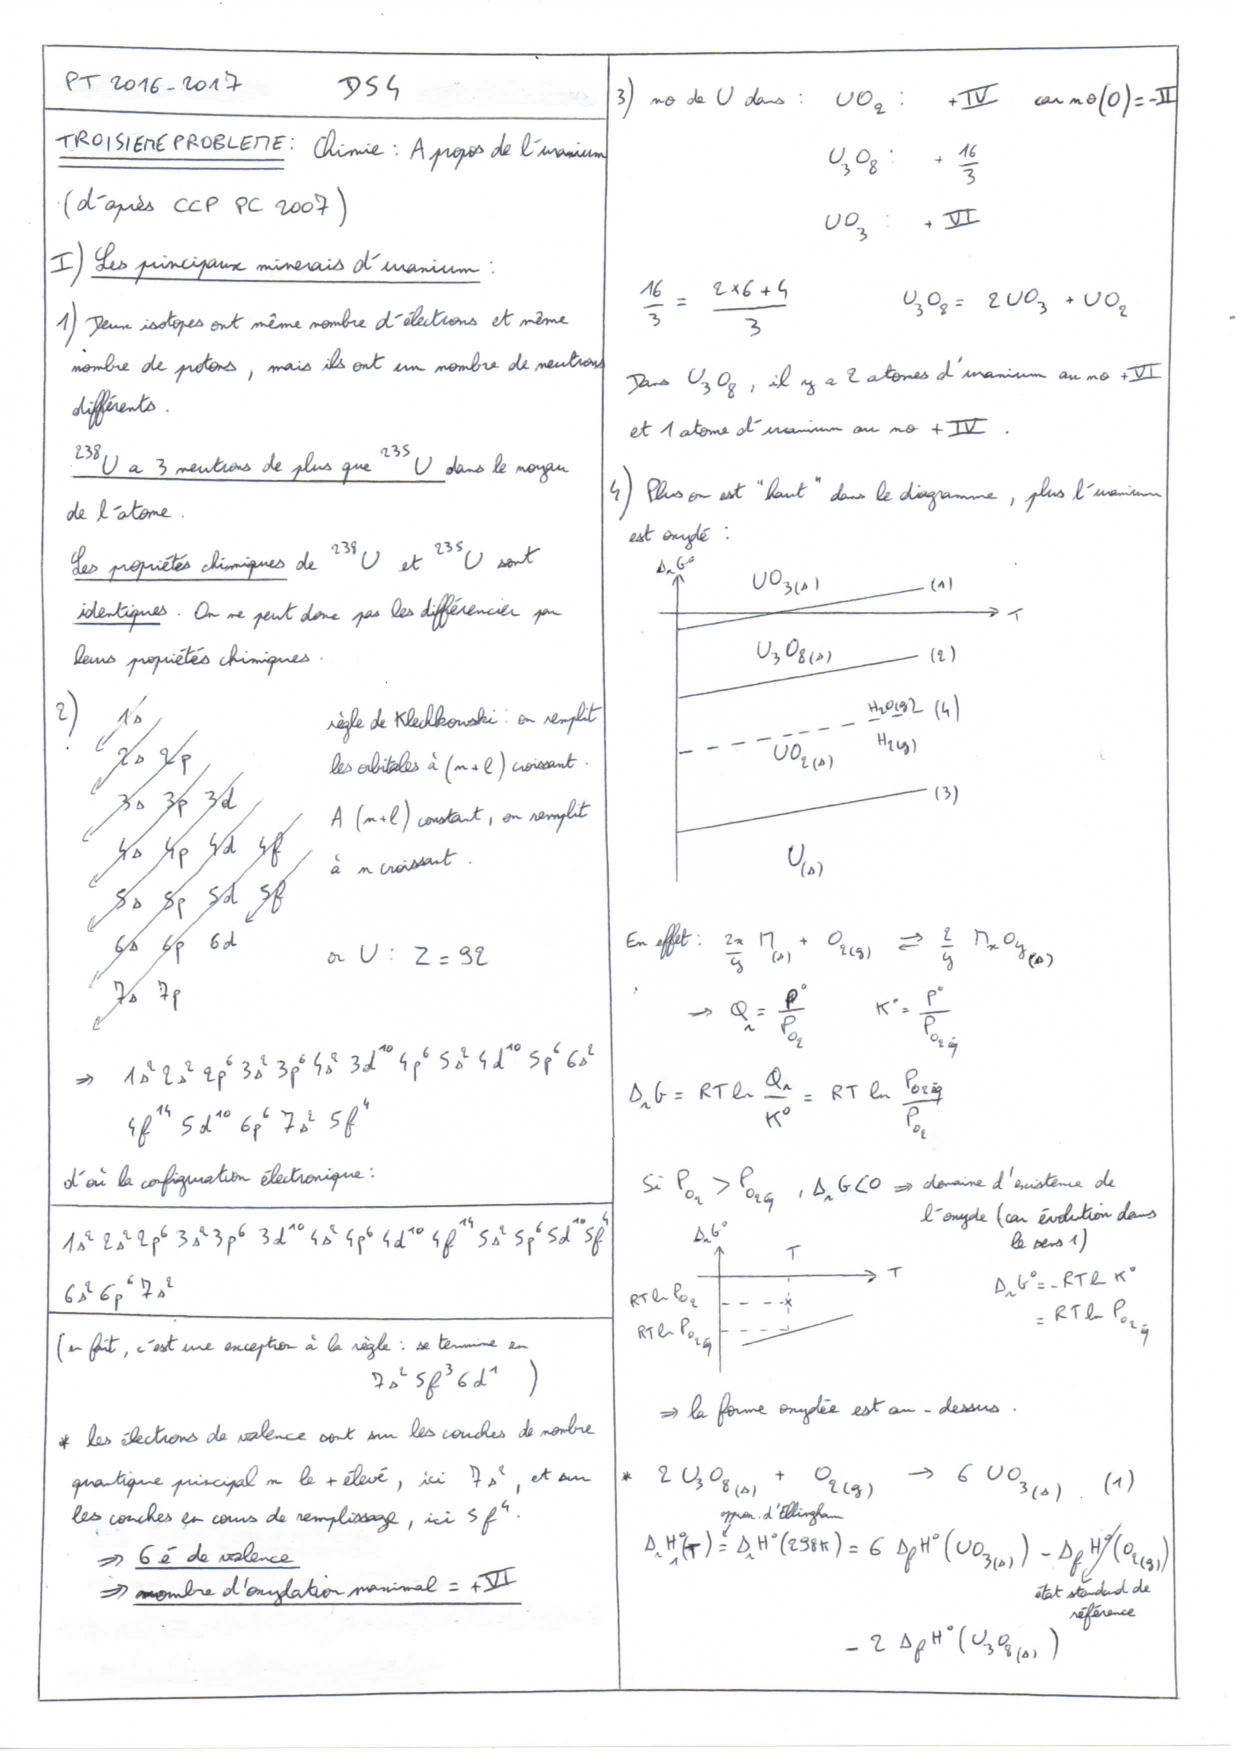 PT 2016-2017 DS4
TROISIEME PROBLEME : Chimie : A propos de l'uranium
(d'après CCP PC 2007)
I) Les principaux minerais d'uranium :
1) Deux isotopes ont même nombre d'électrons et même
nombre de protons, mais ils ont un nombre de neutrons
différents.
²³⁸U a 3 neutrons de plus que ²³⁵U dans le noyau
de l'atome.
Les propriétés chimiques de ²³⁸U et ²³⁵U sont
identiques. On ne peut donc pas les différencier par
leurs propriétés chimiques.
2) 1s
2s 2p
3s 3p 3d
4s 4p 4d 4f
5s 5p 5d 5f
6s 6p 6d
7s 7p
règle de Klechkowski : on remplit
les orbitales à (n+l) croissant.
A (n+l) constant, on remplit
à n croissant.
or U : Z = 92
⇒ 1s² 2s² 2p⁶ 3s² 3p⁶ 4s² 3d¹⁰ 4p⁶ 5s² 4d¹⁰ 5p⁶ 6s²
4f¹⁴ 5d¹⁰ 6p⁶ 7s² 5f⁴
d'où la configuration électronique :
1s² 2s² 2p⁶ 3s² 3p⁶ 3d¹⁰ 4s² 4p⁶ 4d¹⁰ 4f¹⁴ 5s² 5p⁶ 5d¹⁰ 5f⁴
6s² 6p⁶ 7s²
(en fait, c'est une exception à la règle : se termine en
7s² 5f³ 6d¹ )
* les électrons de valence sont sur les couches de nombre
quantique principal n le + élevé, ici 7s², et sur
les couches en cours de remplissage, ici 5f⁴.
⇒ 6 é de valence
⇒ nombre d'oxydation maximal = +VI
3) no de U dans : UO₂ : +IV car no(O) = -II
U₃O₈ : + 16/3
UO₃ : + VI
16/3 = (2×6+4)/3 U₃O₈ = 2UO₃ + UO₂
Dans U₃O₈, il y a 2 atomes d'uranium au no +VI
et 1 atome d'uranium au no +IV.
4) Plus on est "haut" dans le diagramme, plus l'uranium
est oxydé :
ΔrG°
UO₃(s) (1)
T
U₃O₈(s) (2)
H₂O(g) (4)
UO₂(s) H₂(g)
(3)
U(s)
En effet : 2x/y M(s) + O₂(g) ⇌ 2/y MxOy(s)
→ Qr = P°/P_O₂ K° = P°/P_O₂éq
ΔrG = RT ln Qr/K° = RT ln P_O₂éq/P_O₂
Si P_O₂ > P_O₂éq, ΔrG<0 ⇒ domaine d'existence de
l'oxyde (car évolution dans
le sens 1)
ΔrG°
T
T
RT ln P_O₂
RT ln P_O₂éq
ΔrG° = -RT ln K°
= RT ln P_O₂éq
⇒ la forme oxydée est au-dessus.
* 2 U₃O₈(s) + O₂(g) → 6 UO₃(s). (1)
approx. d'Ellingham
ΔrH₁°(T) = ΔrH°(298K) = 6 ΔfH°(UO₃(s)) - ΔfH°(O₂(g))
état standard de
référence
- 2 ΔfH°(U₃O₈(s))